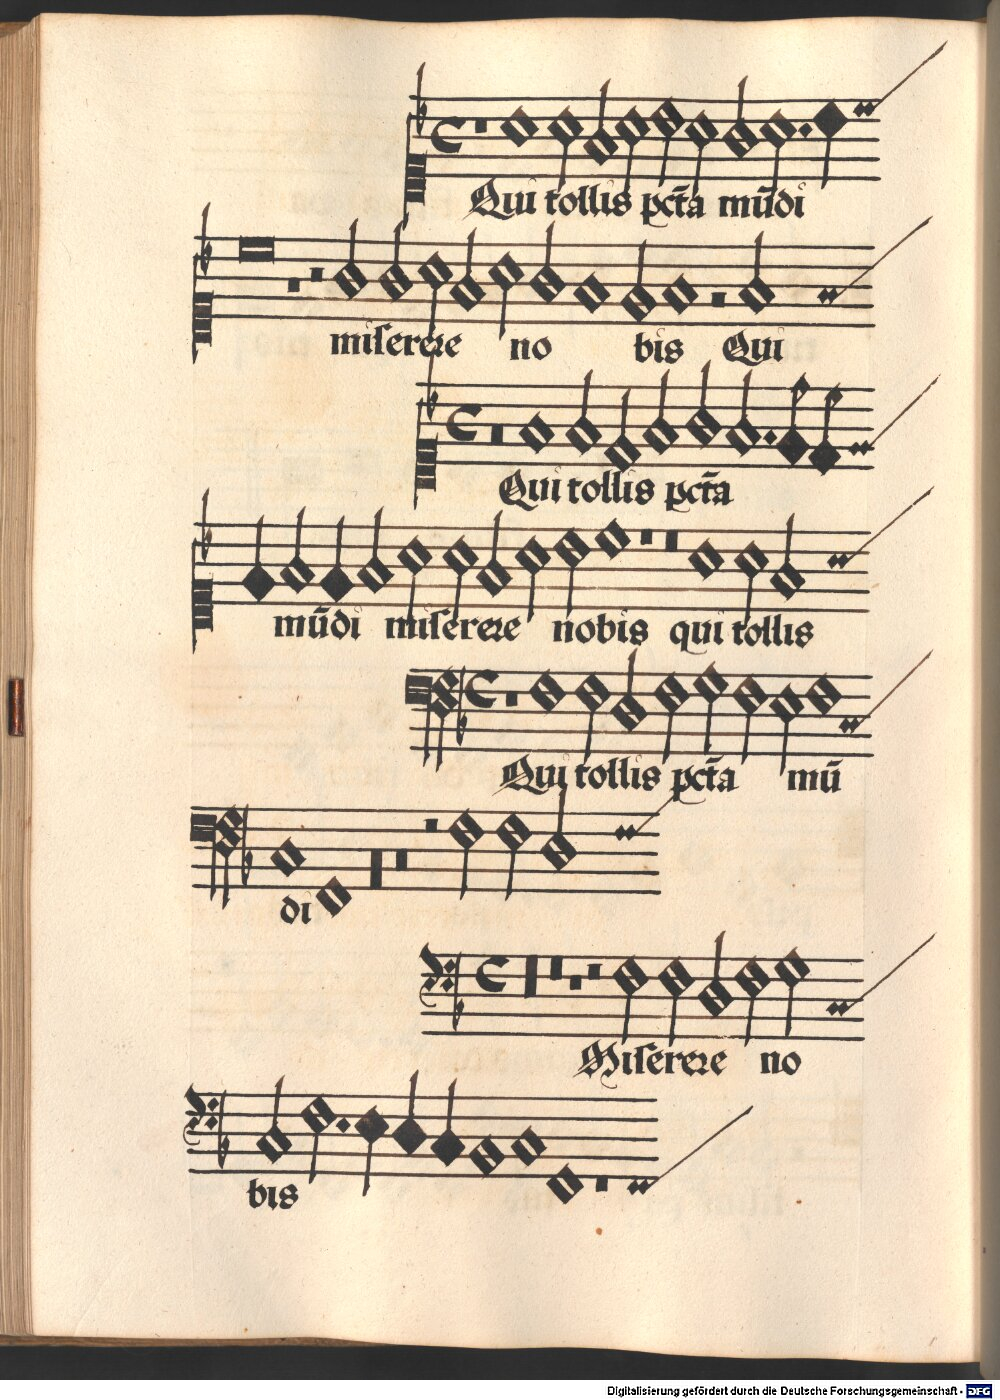 Qui tollis pct̄a mūdi
miserere no bis Qui
Qui tollis pct̄a
mūdi miserere nobis qui tollis
Qui tollis pct̄a mū
di
Miserere no
bis
Digitalisierung gefördert durch die Deutsche Forschungsgemeinschaft - DFG